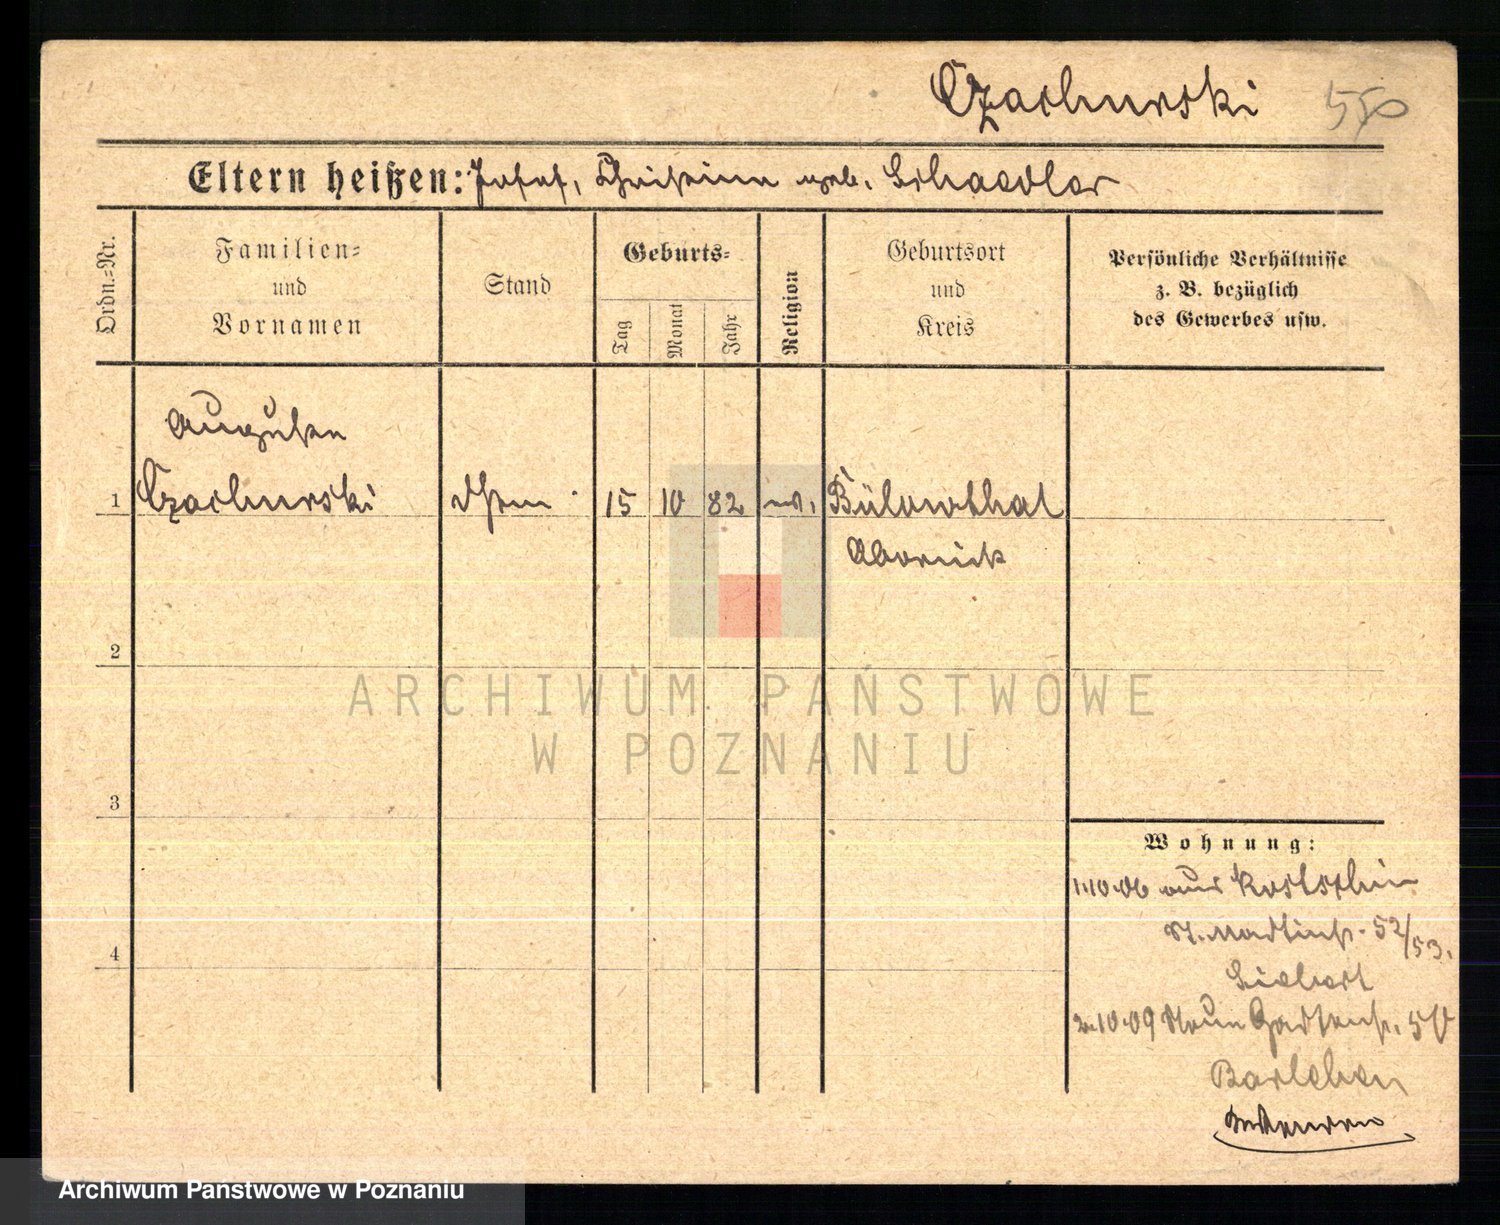 Czachurski 550
Eltern heißen: Josef, Christine geb. Schaedler
Ordn.-Nr.
Familien-
und
Vornamen
Stand
Geburts-
Tag
Monat
Jahr
Religion
Geburtsort
und
Kreis
Persönliche Verhältnisse
z. B. bezüglich
des Gewerbes usw.
Auguste
1 Czachurski 15 10 82 Bülowsthal
Obornick
2
3
4
ARCHIWUM PAŃSTWOWE
W POZNANIU
Wohnung:
1.10.06 aus
St. Martinstr. 52/53.
Siebert
2.10.09 Neue Gartenstr. 50
Barleben
Archiwum Państwowe w Poznaniu